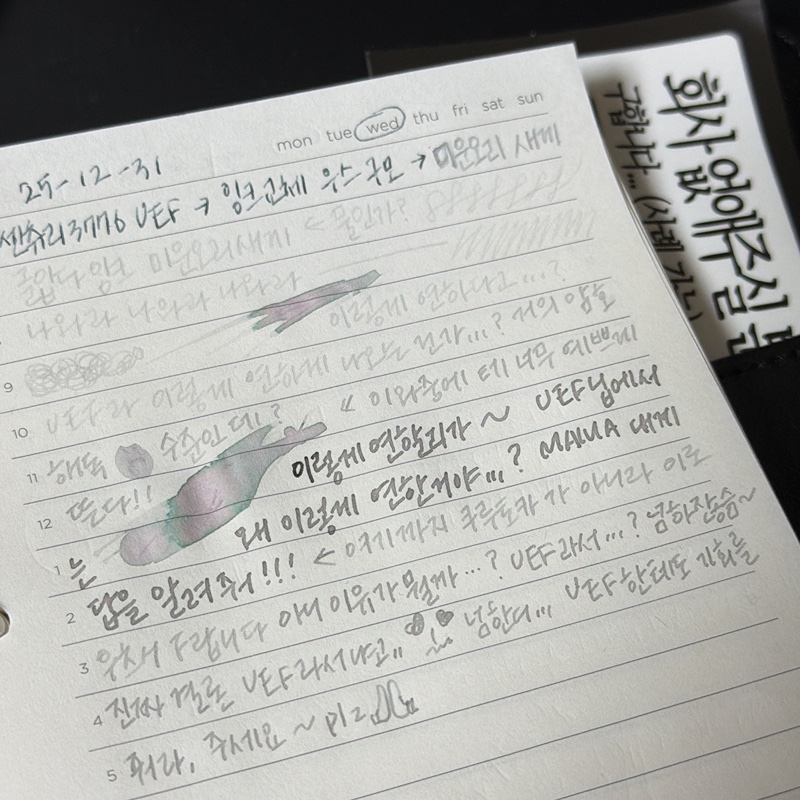 mon tue wed thu fri sat sun
25-12-31
센츄리3776 UEF → 잉크교체 우스구모 → 미운오리 새끼
미운오리새끼 < 물인가?
나와라 나와라 나와라
이렇게 연하다고...?
9
10 UEF라 이렇게 연하게 나오는 건가...? 거의 암호
11 해독 수준인데? < 이와중에 테 너무 예쁘게
12 뜬다!! 이렇게 연할리가~ UEF님에서
1 는 왜 이렇게 연한거야...? MAMA 내게
2 답을 알려줘!!! < 여기까지 쿠루호카가 아니라 이로
3 우츠시 F랍니다 아니 이유가 뭘까...? UEF라서...? 넘하잖슴~
4 진짜 결론 UEF라서냐고.. 넘한더... UEF한테도 기회를
5 줘라, 주세요~ plz
회사 없애주실 분
구합니다... (사례 가능)